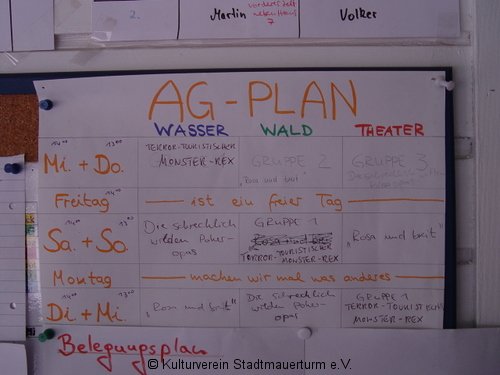 2.
Martin
Volker
7
AG-PLAN
WASSER WALD THEATER
Mi. + Do.
TERROR-TOURISTISCHER
MONSTER-REX
GRUPPE 2
„Rosa und breit"
GRUPPE 3
Freitag — ist ein freier Tag —
Sa. + So.
Die schrecklich
wilden Poker-
opas
GRUPPE 1
TERROR-TOURISTISCHER
MONSTER-REX
„Rosa und breit"
Montag — machen wir mal was anderes —
Di + Mi.
„Rosa und breit"
Die schrecklich
wilden Poker-
opas
GRUPPE 1
TERROR-TOURISTISCHER
MONSTER-REX
Belegungsplan
© Kulturverein Stadtmauerturm e.V.